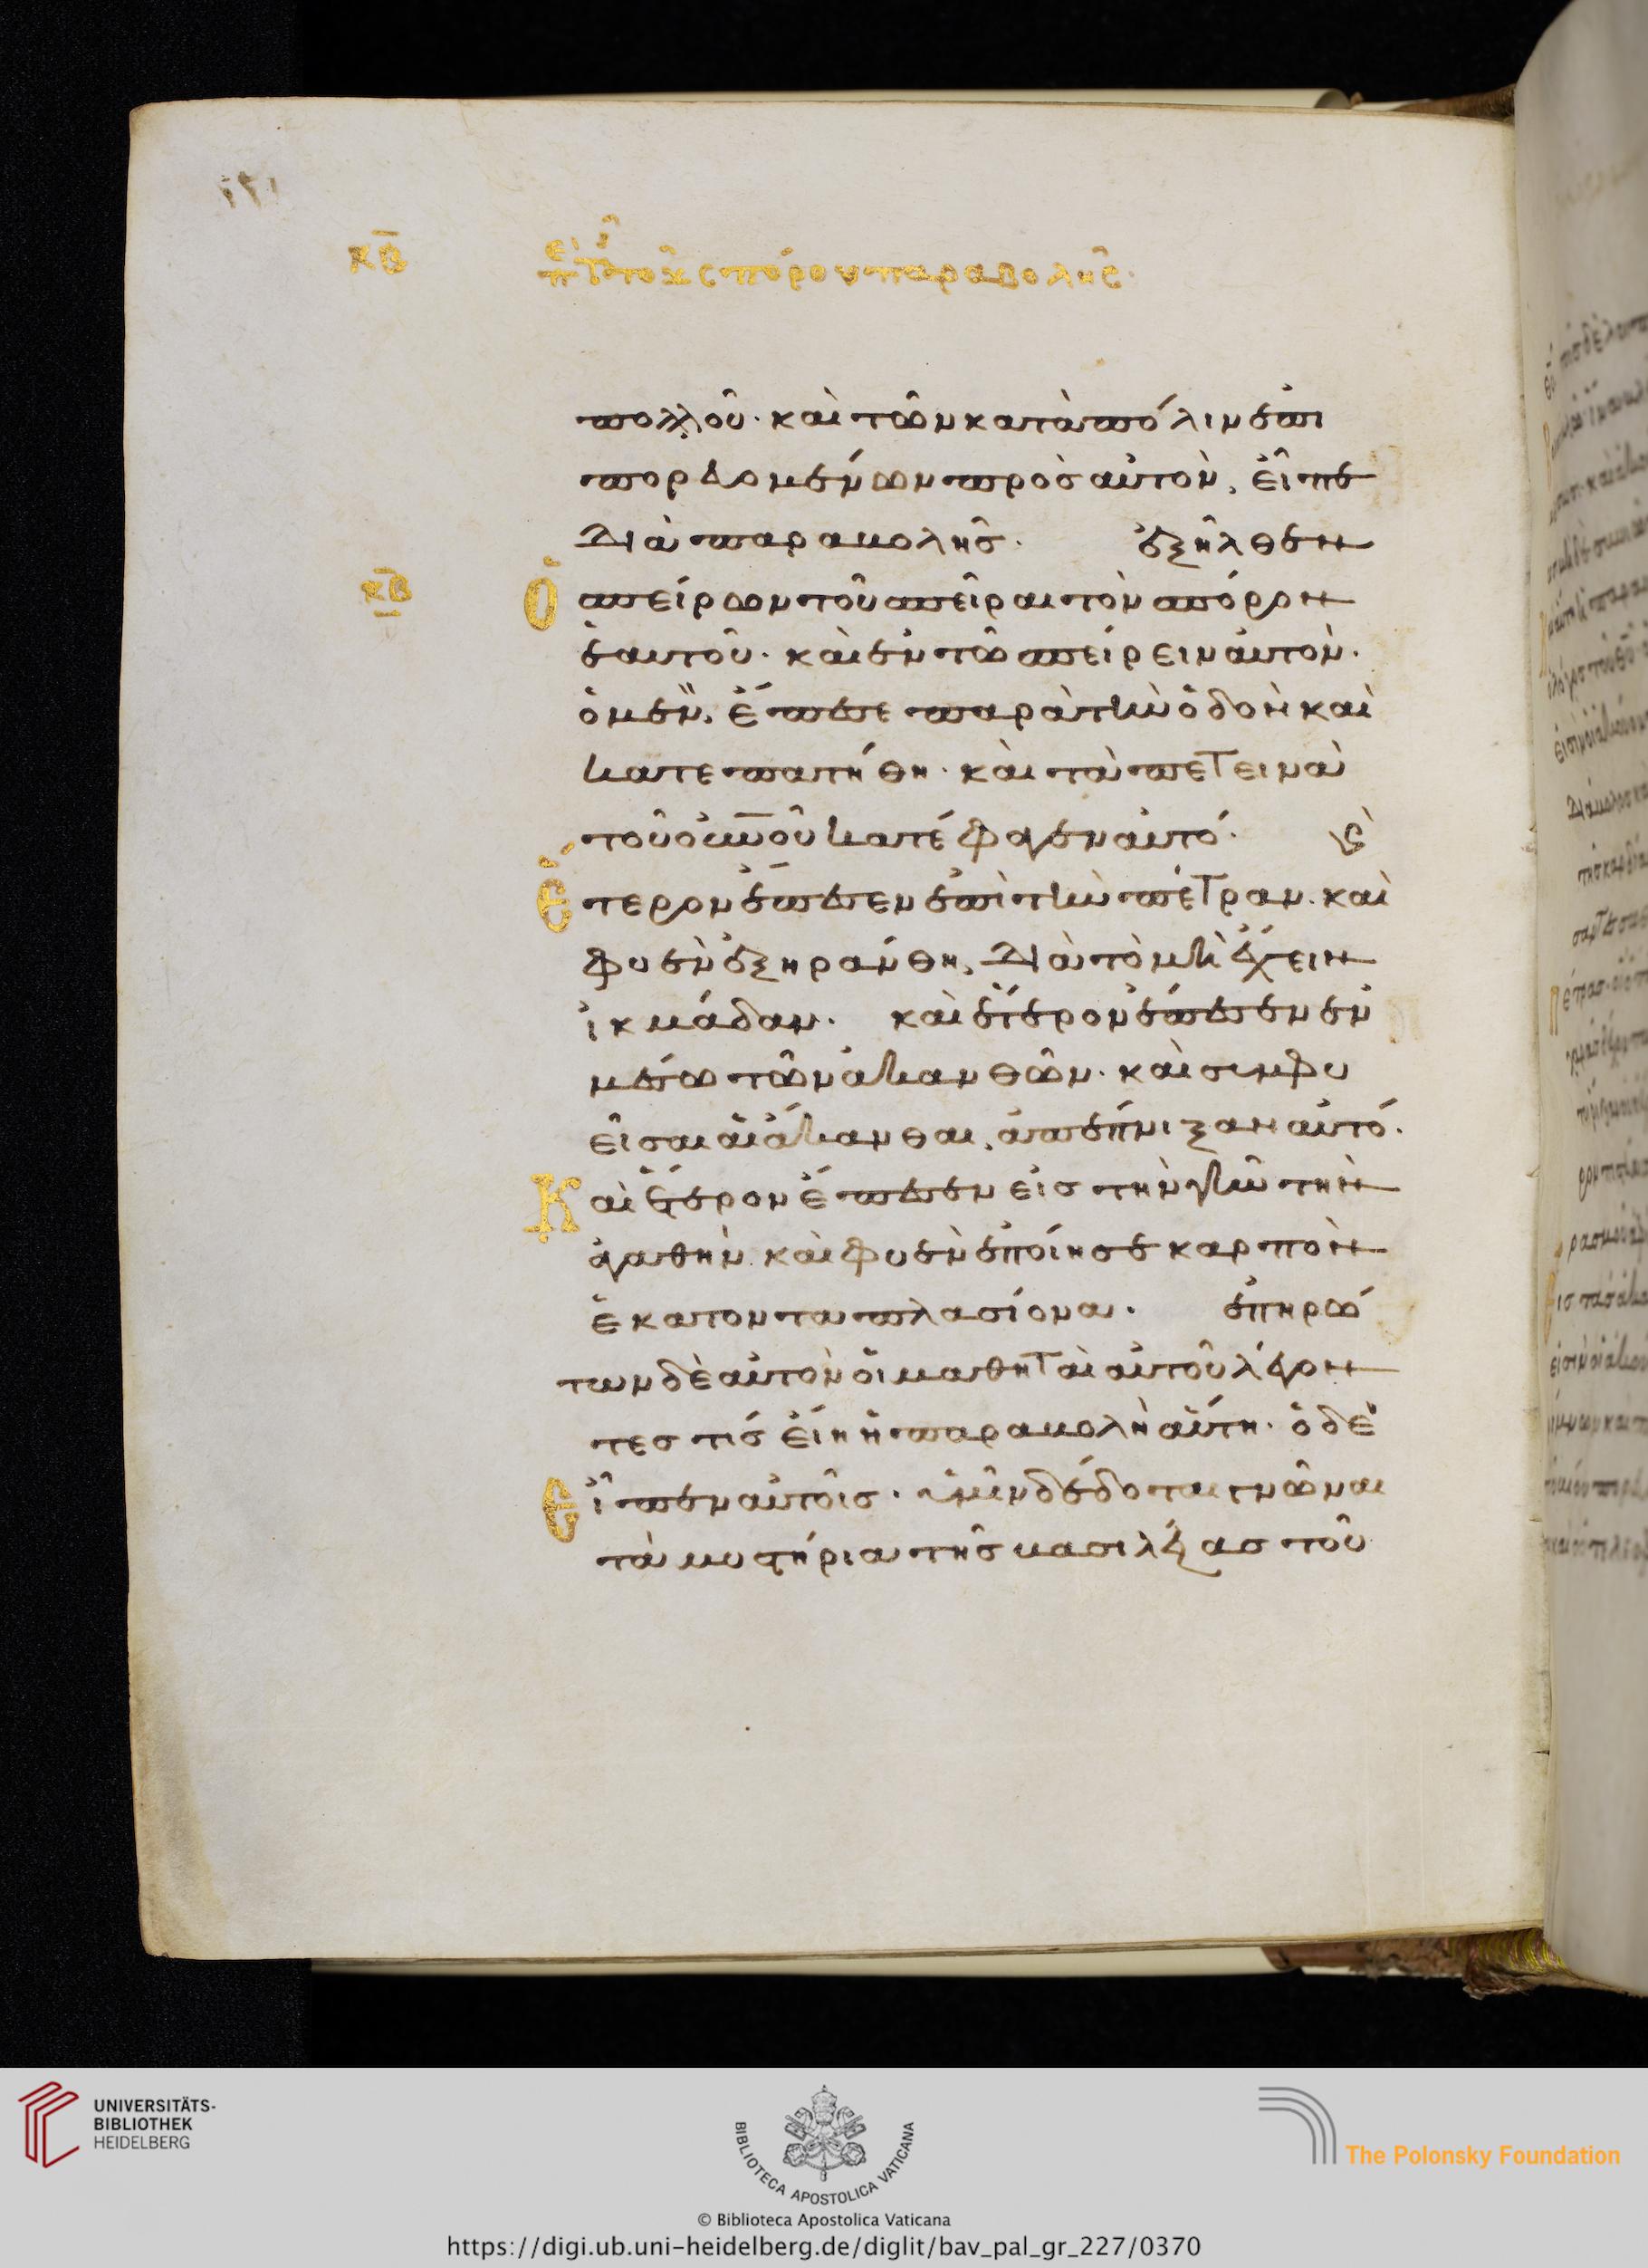 κβ περι του σπόρου παραβολῆς·
πολλοῦ· καὶ τῶν κατὰ πόλιν ἐπι
πορευομένων πρὸς αὐτὸν, εἶπε
διὰ παραβολῆς· ἐξῆλθεν
κβ Ὁ σπείρων τοῦ σπεῖραι τὸν σπόρον
ἑαυτοῦ· καὶ ἐν τῶ σπείρειν αὐτὸν·
ὃ μὲν, ἔπεσε παρὰ τὴν ὁδὸν καὶ
κατεπατήθη· καὶ τὰ πετεινὰ
τοῦ οὐνοῦ κατέφαγεν αὐτό· κ
Ἕτερον ἔπεσεν ἐπὶ τὴν πέτραν· καὶ
φυὲν ἐξηράνθη, διὰ τὸ μὴ ἔχειν
ἰκμάδαν· καὶ ἕτερον ἔπεσεν ἐν
μέσω τῶν ἀκανθῶν· καὶ συμφυ
εῖσαι αἱ ἄκανθαι, ἀπέπνιξαν αὐτό·
Καὶ ἕτερον ἔπεσεν εἰς τὴν γῆν τὴν
ἀγαθήν· καὶ φυὲν ἐποίησε καρπὸν
ἑκατονταπλασίονα· ἐπηρώ
των δὲ αὐτὸν οἱ μαθηταὶ αὐτοῦ λέγον
τες τίς εἴη ἡ παραβολὴ αὕτη· ὁ δὲ
Εἶπεν αὐτοῖς· ὑμῖν δέδοται γνῶναι
τὰ μυστήρια τῆς βασιλείας τοῦ
UNIVERSITÄTS-
BIBLIOTHEK
HEIDELBERG
BIBLIOTECA APOSTOLICA VATICANA
The Polonsky Foundation
© Biblioteca Apostolica Vaticana
https://digi.ub.uni-heidelberg.de/diglit/bav_pal_gr_227/0370